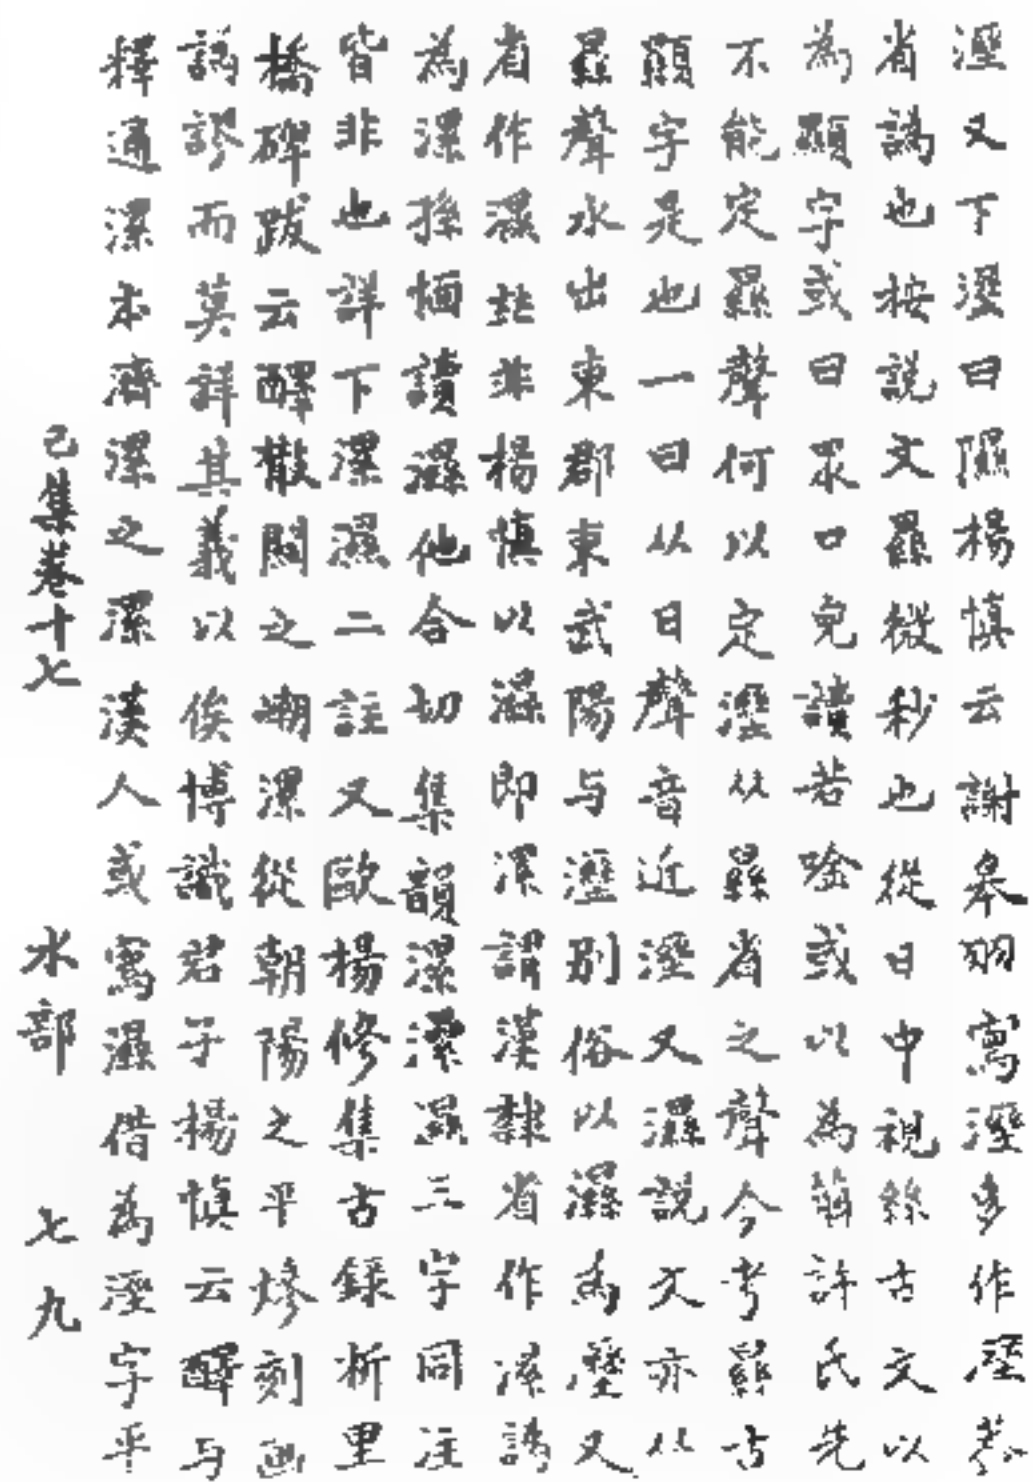 溼又下溼曰隰楊慎云謝皋羽寫溼多作㴔蓋
省譌也按説文㬎從㣲杪也從日中視絲古文以
為顯字或曰眾口皃讀若唫或以為繭許氏先
不能定㬎聲何以定溼从㬎省之聲今考㬎古
顯字是也一曰从日聲音近溼又濕説文亦从
㬎聲水出東郡東武陽与溼別俗以濕為溼又
省作濕並非楊慎以濕即漯謂漢隸省作漯譌
為漯孫愐讀濕他合切集韻漯㶟濕三字同注
皆非也詳下漯濕二註又歐楊修集古録析里
橋碑跋云醳散関之嶃漯從朝陽之平燯刻画
譌謬而莫詳其義以俟博識君子楊慎云醳与
釋通漯本濟漯之漯漢人或寫濕借為溼字平
己集卷十七
水部
七九